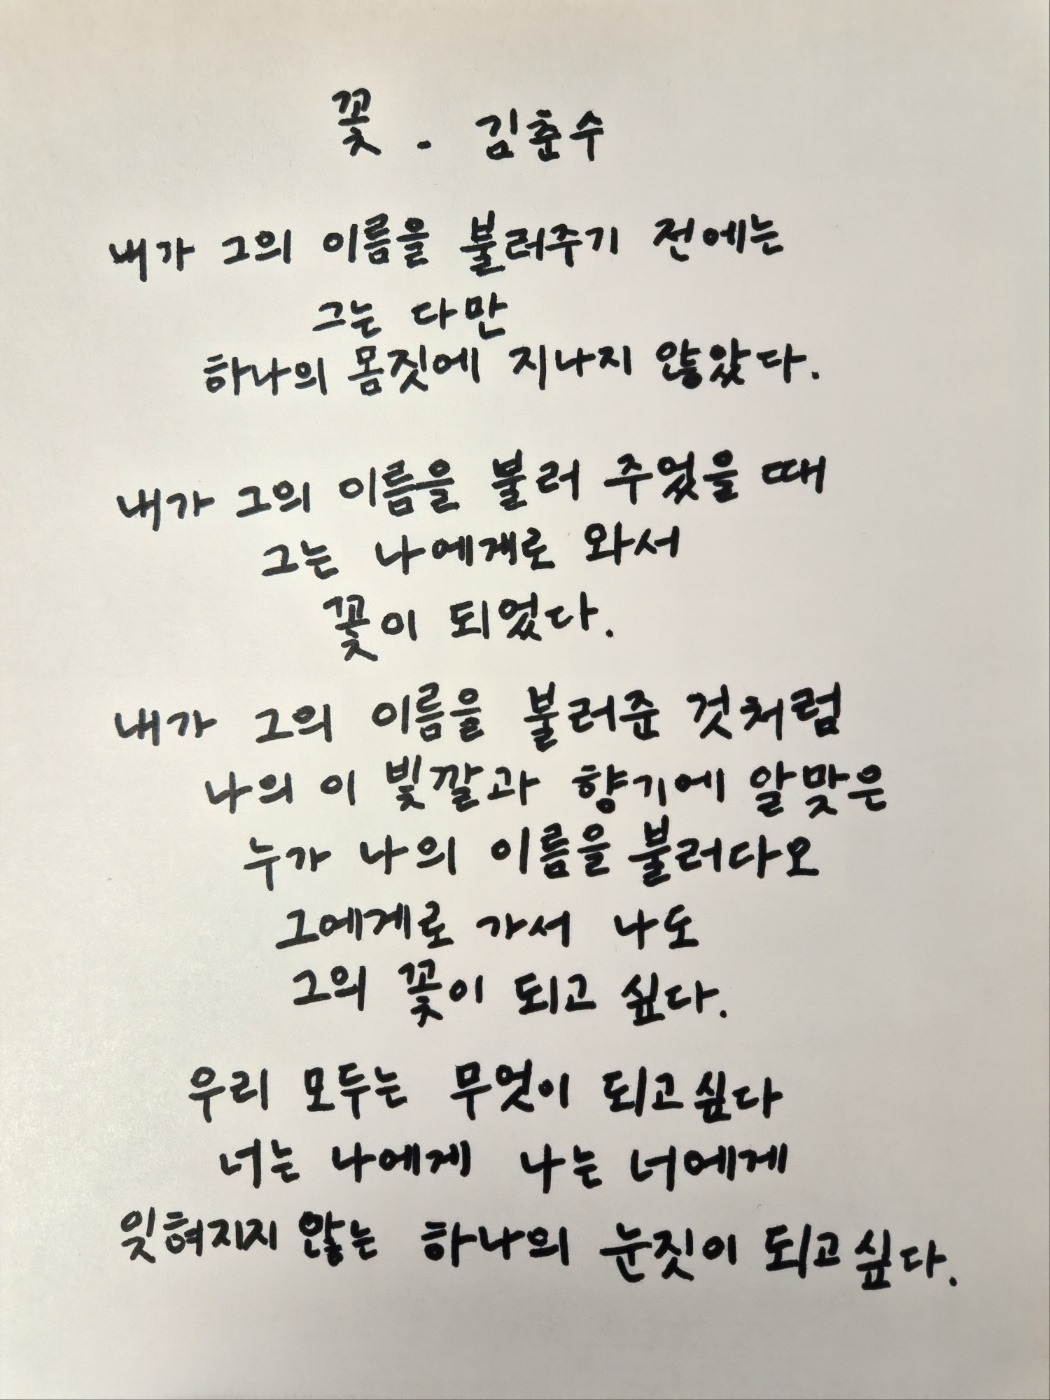 꽃 - 김춘수
내가 그의 이름을 불러주기 전에는
그는 다만
하나의 몸짓에 지나지 않았다.
내가 그의 이름을 불러 주었을 때
그는 나에게로 와서
꽃이 되었다.
내가 그의 이름을 불러준 것처럼
나의 이 빛깔과 향기에 알맞은
누가 나의 이름을 불러다오
그에게로 가서 나도
그의 꽃이 되고 싶다.
우리 모두는 무엇이 되고싶다
너는 나에게 나는 너에게
잊혀지지 않는 하나의 눈짓이 되고싶다.